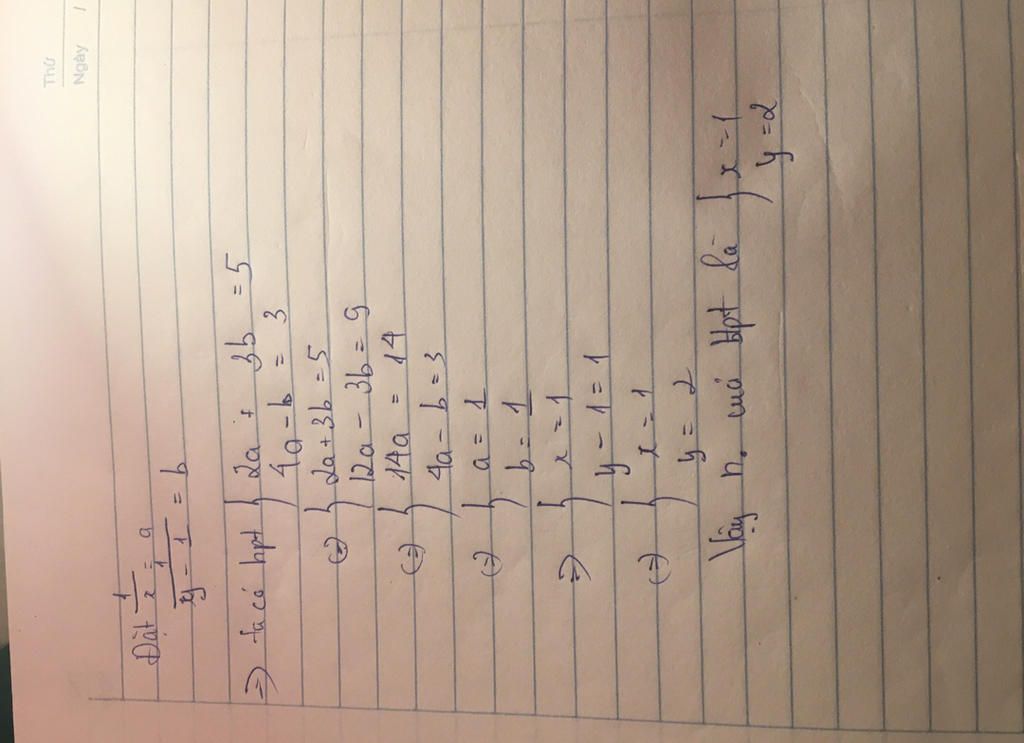 Thứ
Ngày /
Đặt 1/x = a
1/(y - 1) = b
=> ta có hpt { 2a + 3b = 5
4a - b = 3
(=) { 2a + 3b = 5
12a - 3b = 9
(=) { 14a = 14
4a - b = 3
(=) { a = 1
b = 1
=> { x = 1
y - 1 = 1
(=) { x = 1
y = 2
Vậy n0 của hpt là { x = 1
y = 2